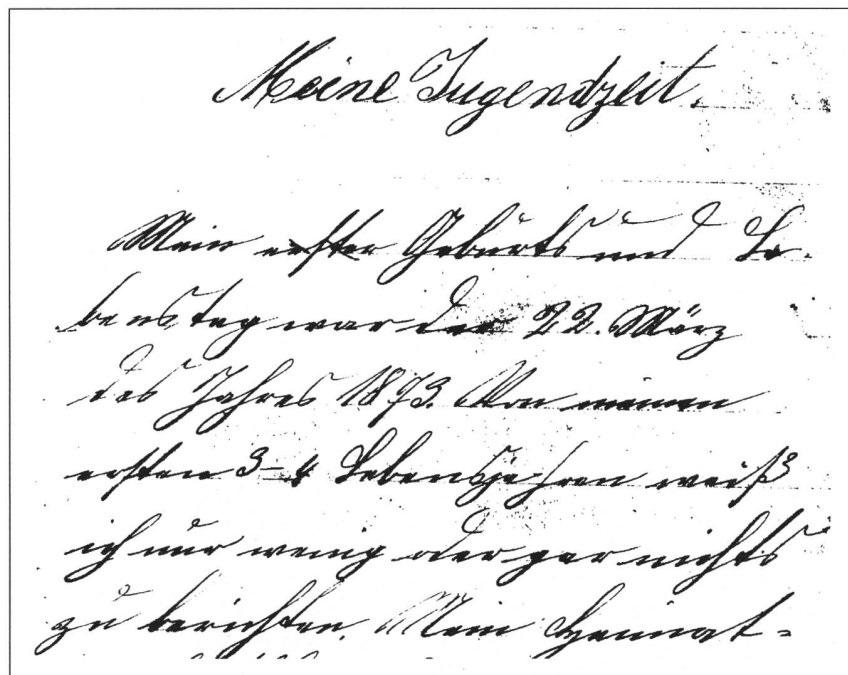 Meine Jugendzeit.
Mein erster Geburts und Le-
benstag war der 22. März
des Jahres 1893. Von meinen
ersten 3-4 Lebensjahren weiß
ich nur wenig oder gar nichts
zu berichten. Mein Heimat-